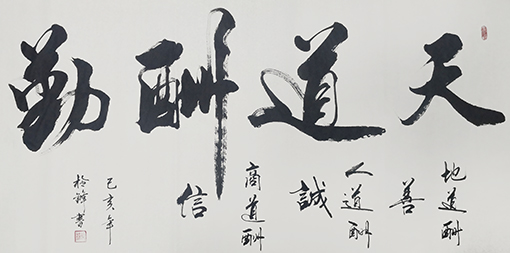 天道酬勤
地道酬善
人道酬誠
商道酬信
己亥年
書